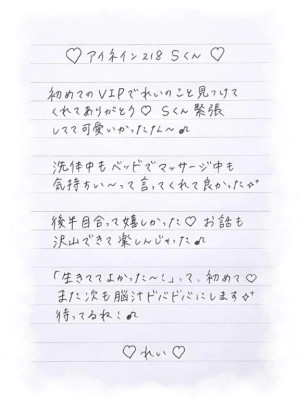 ♡ アイネイン218 Sくん ♡
初めてのVIPでれいのこと見つけて
くれてありがとう♡ Sくん緊張
してて可愛いかったなん〜♪
洗体中もベッドでマッサージ中も
気持ちい〜って言ってくれて良かった✨
後半目合って嬉しかった♡ お話も
沢山できて楽しんじゃった♪
「生きててよかった〜!」って、初めて♡
また次も脳汁ドバドバにします✨
待ってるね!♪
♡ れい ♡